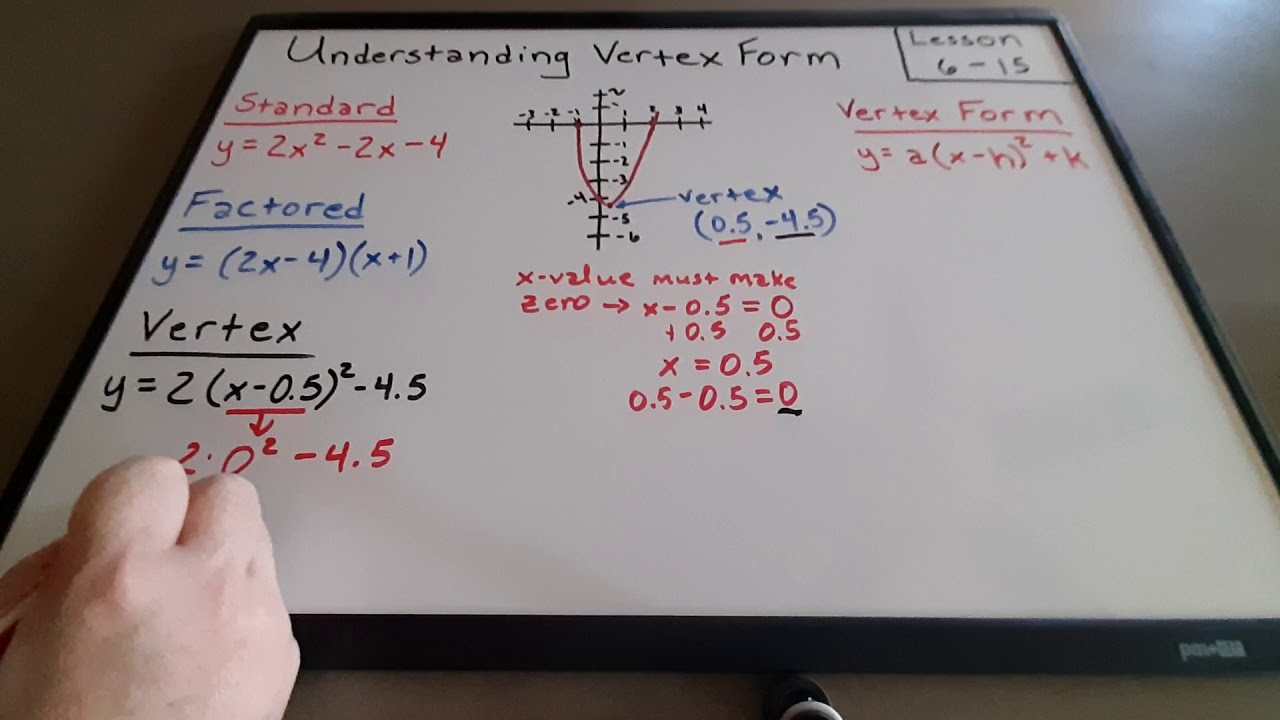 Understanding Vertex Form
Lesson
6-15
Standard
y = 2x² - 2x - 4
Factored
y = (2x - 4)(x + 1)
Vertex
y = 2(x - 0.5)² - 4.5
2·0² - 4.5
-3 -2 -1 1 2 3 4
2
-1
-2
-3
-4
-5
-6
vertex
(0.5, -4.5)
x-value must make
zero → x - 0.5 = 0
+0.5 0.5
x = 0.5
0.5 - 0.5 = 0
Vertex Form
y = a(x - h)² + k